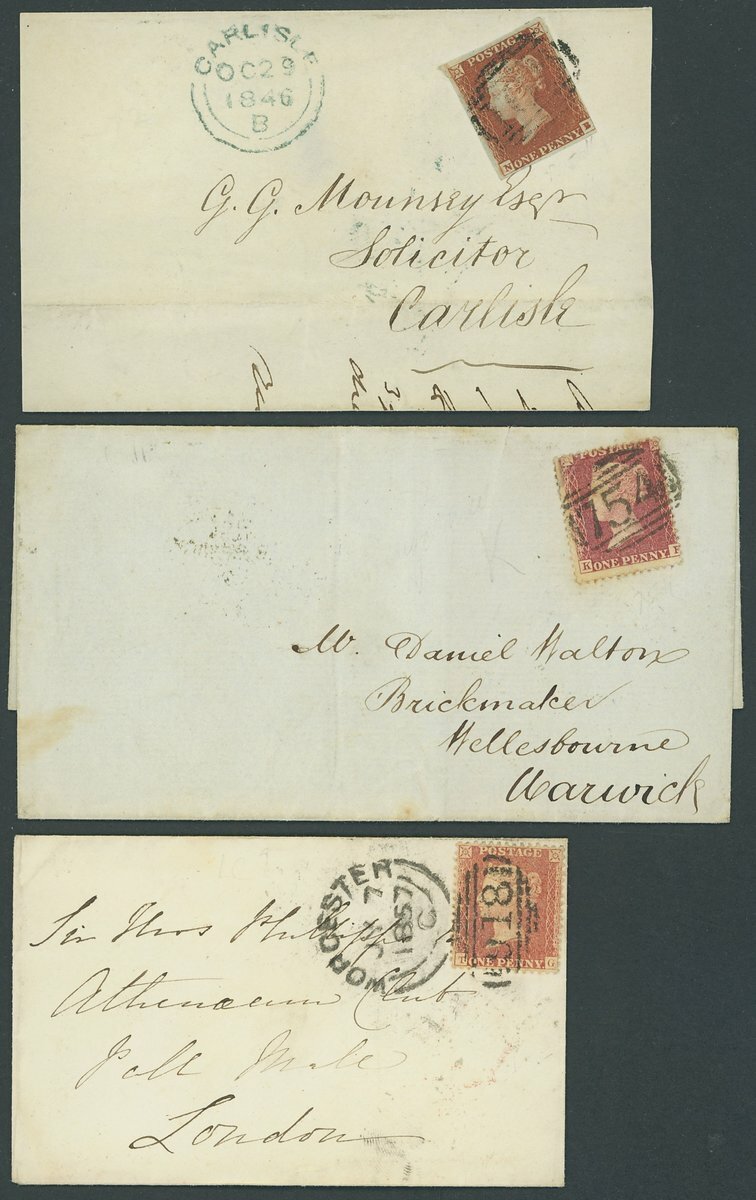 CARLISLE
OC 29
1846
B
POSTAGE
N ONE PENNY
G. G. Mounsey Esqr
Solicitor
Carlisle
POSTAGE
754
K ONE PENNY F
Mr. Daniel Walton
Brickmaker
Wellesbourne
Warwick
WORCESTER
7
1857
C
POSTAGE
918
T ONE PENNY G
Sir Thos Phillipps
Athenaeum Club
Pall Mall
London